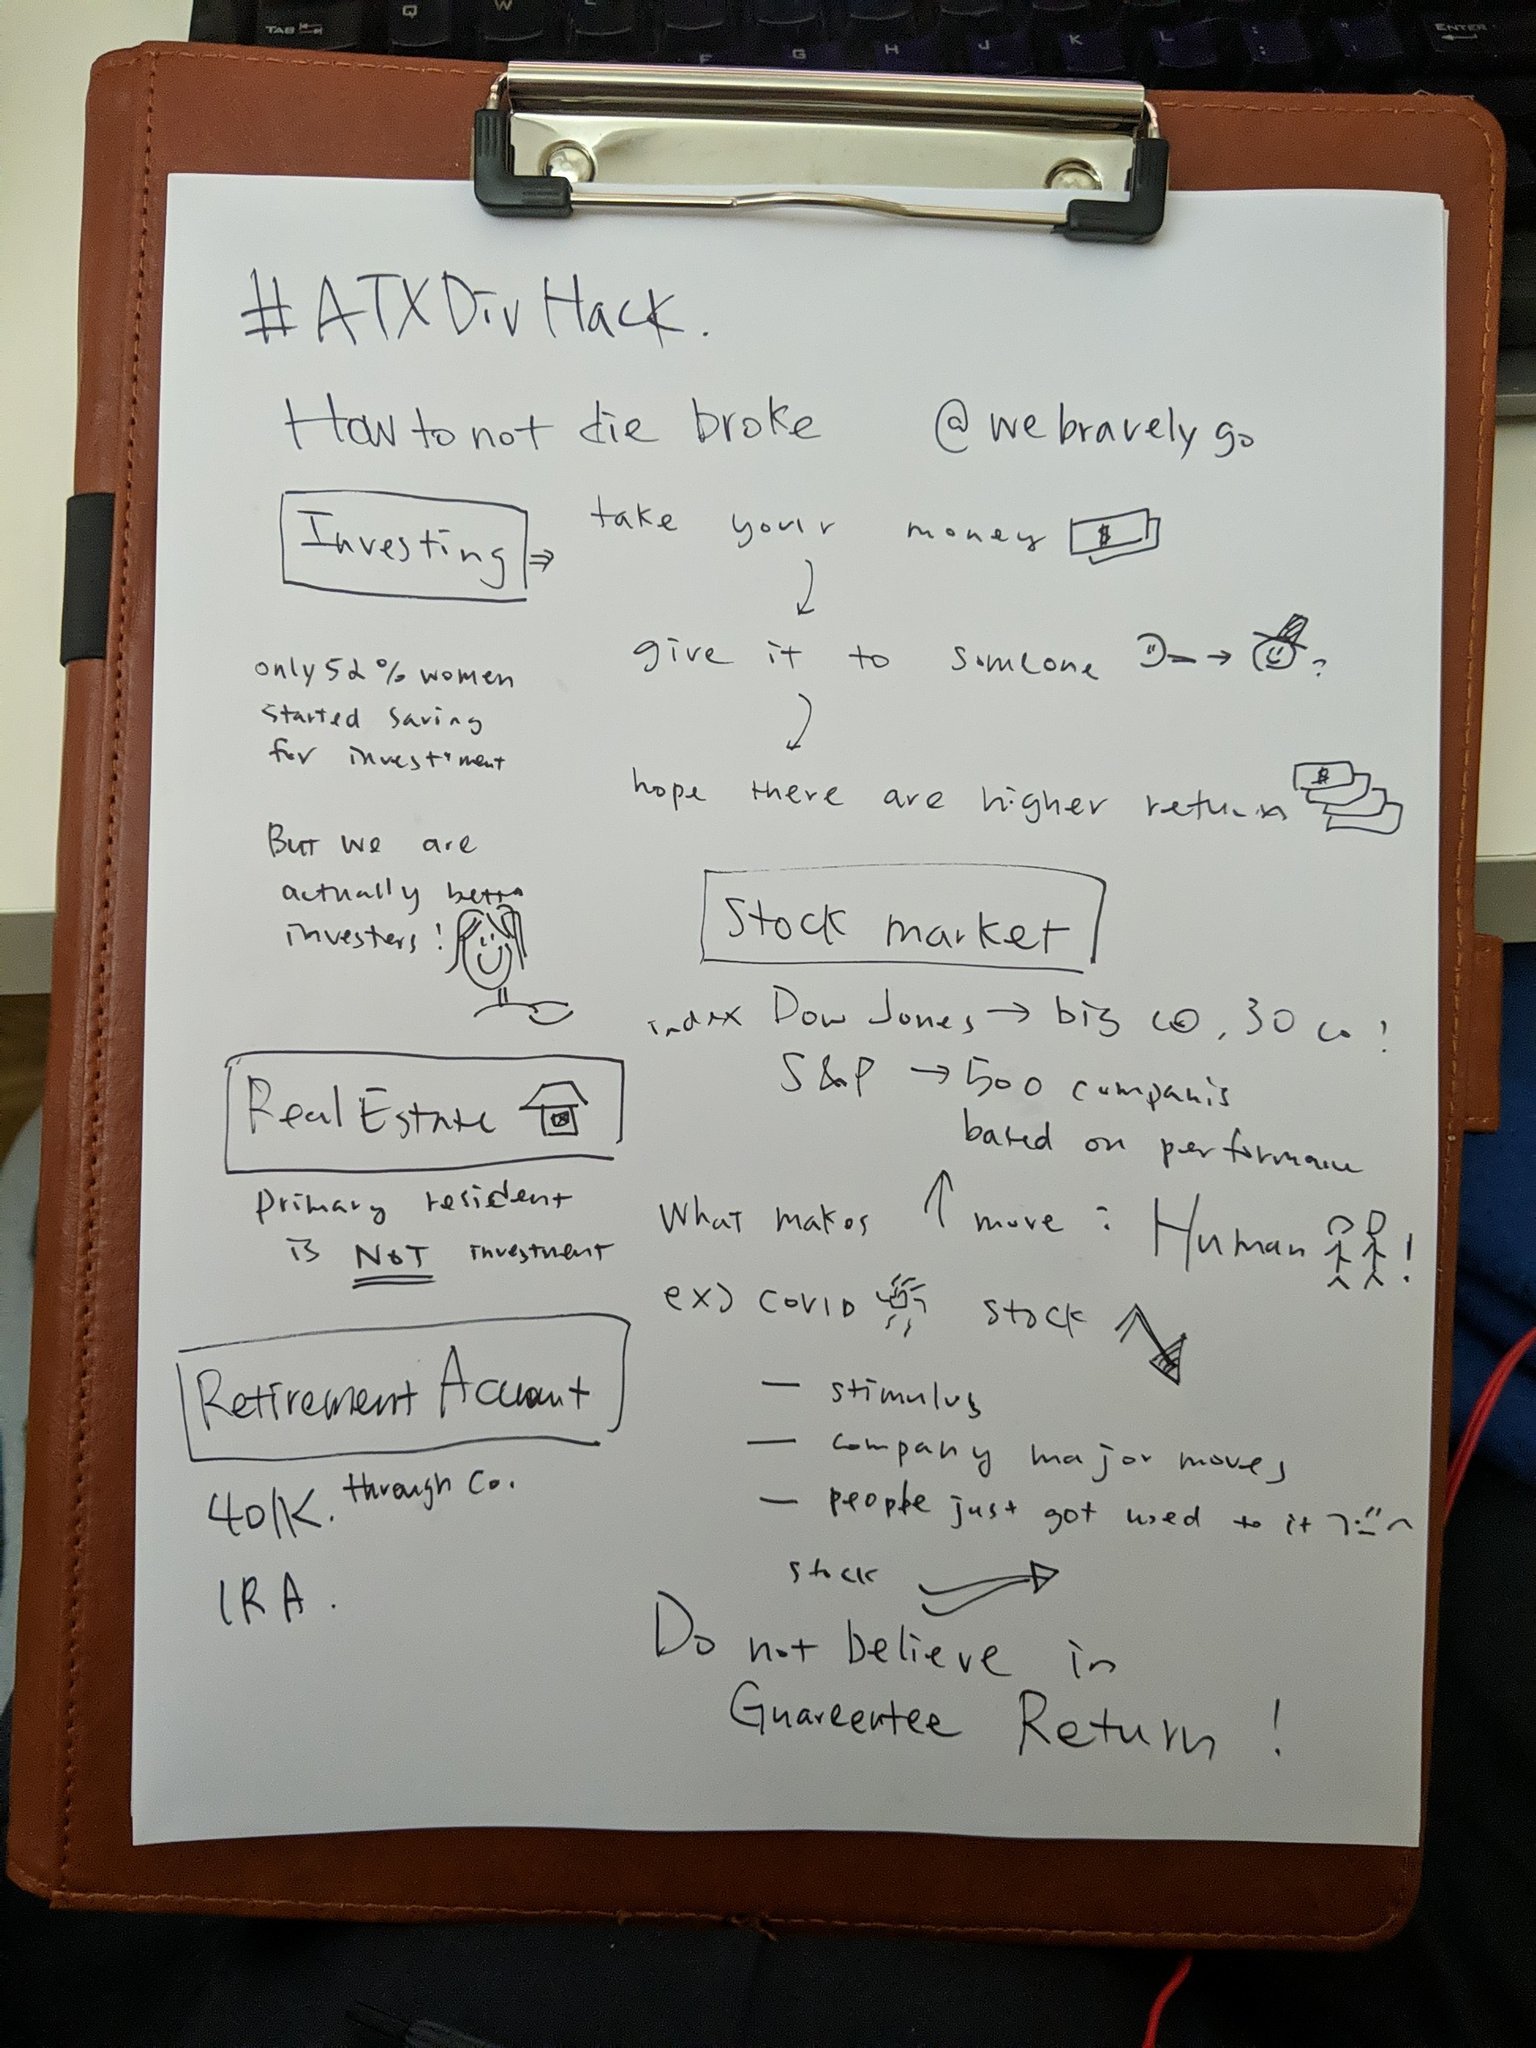 #ATXDivHack.
How to not die broke @webravelygo
Investing ⇒ take your money $
give it to someone
hope there are higher return $
only 52% women
started saving
for investment
But we are
actually
investers!
Real Estate
primary resident
is NOT investment
Retirement Account
401K. through Co.
IRA.
Stock market
index Dow Jones → big co, 30 co!
S&P → 500 companis
based on performance
What makes ↑ move : Human !
ex) COVID stock
- stimulus
- company major moves
- people just got used to it
stock
Do not believe in
Guareentee Return!
TAB
Q
W
F
G
H
J
K
L
ENTER